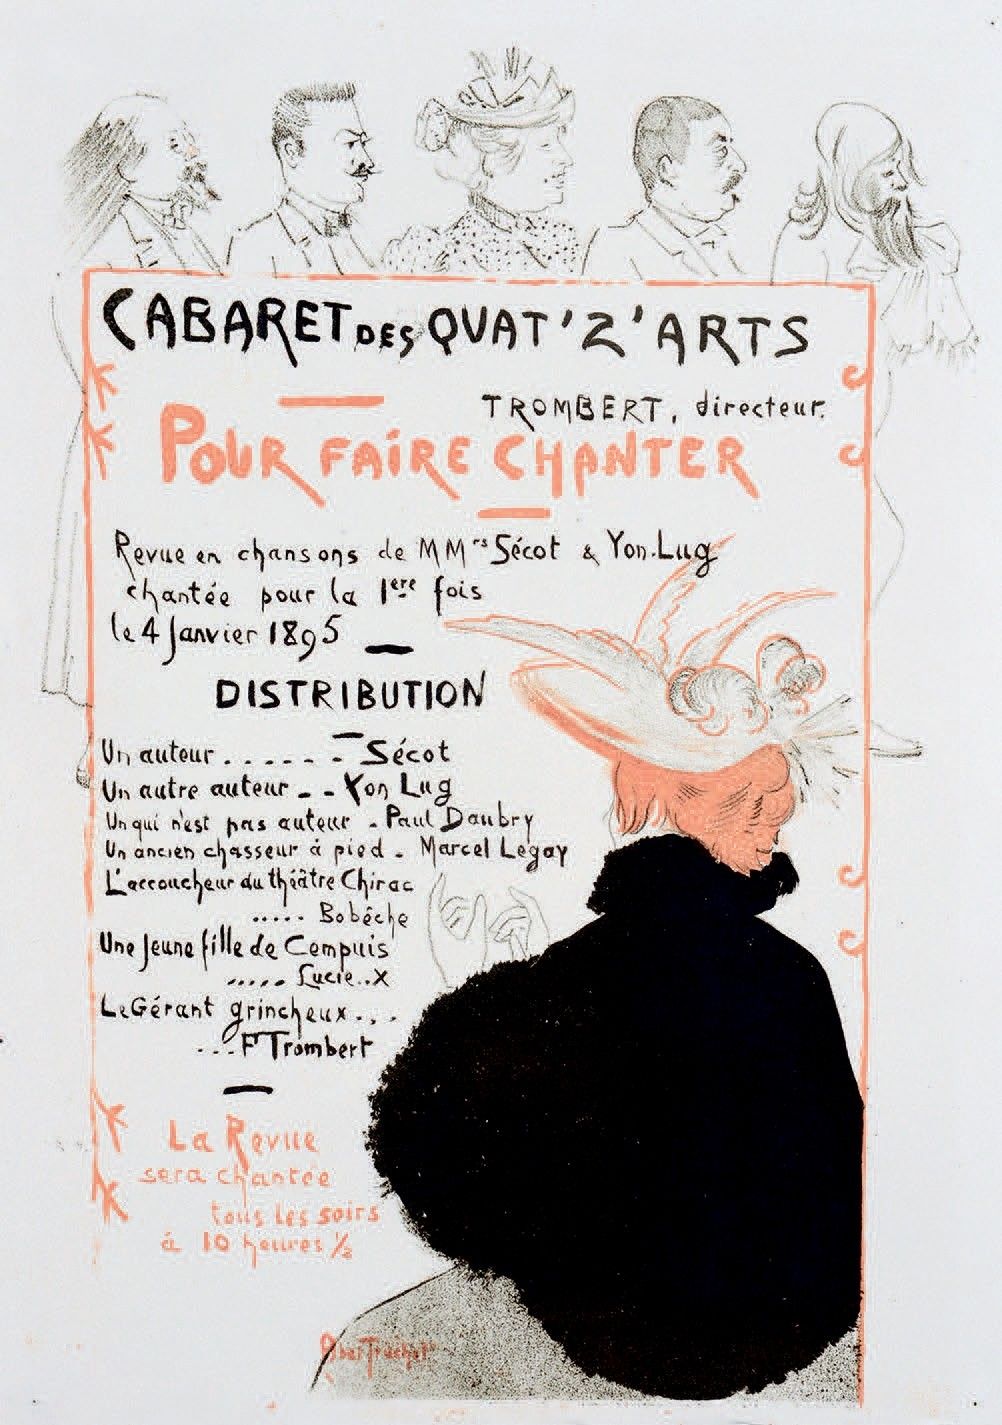 CABARET DES QUAT'Z'ARTS
TROMBERT, directeur.
POUR FAIRE CHANTER
Revue en chansons de MMrs Sécot & Yon-Lug
chantée pour la 1ere fois
le 4 Janvier 1895
DISTRIBUTION
Un auteur . . . . . . - Sécot
Un autre auteur - - Yon Lug
Un qui n'est pas auteur - Paul Daubry
Un ancien chasseur à pied - Marcel Legay
L'accoucheur du théâtre Chirac
..... Bobêche
Une Jeune fille de Cempuis
..... Lucie..X
Le Gérant grincheux . . .
... F Trombert
La Revue
sera chantée
tous les soirs
à 10 heures 1/2
Abel Truchet